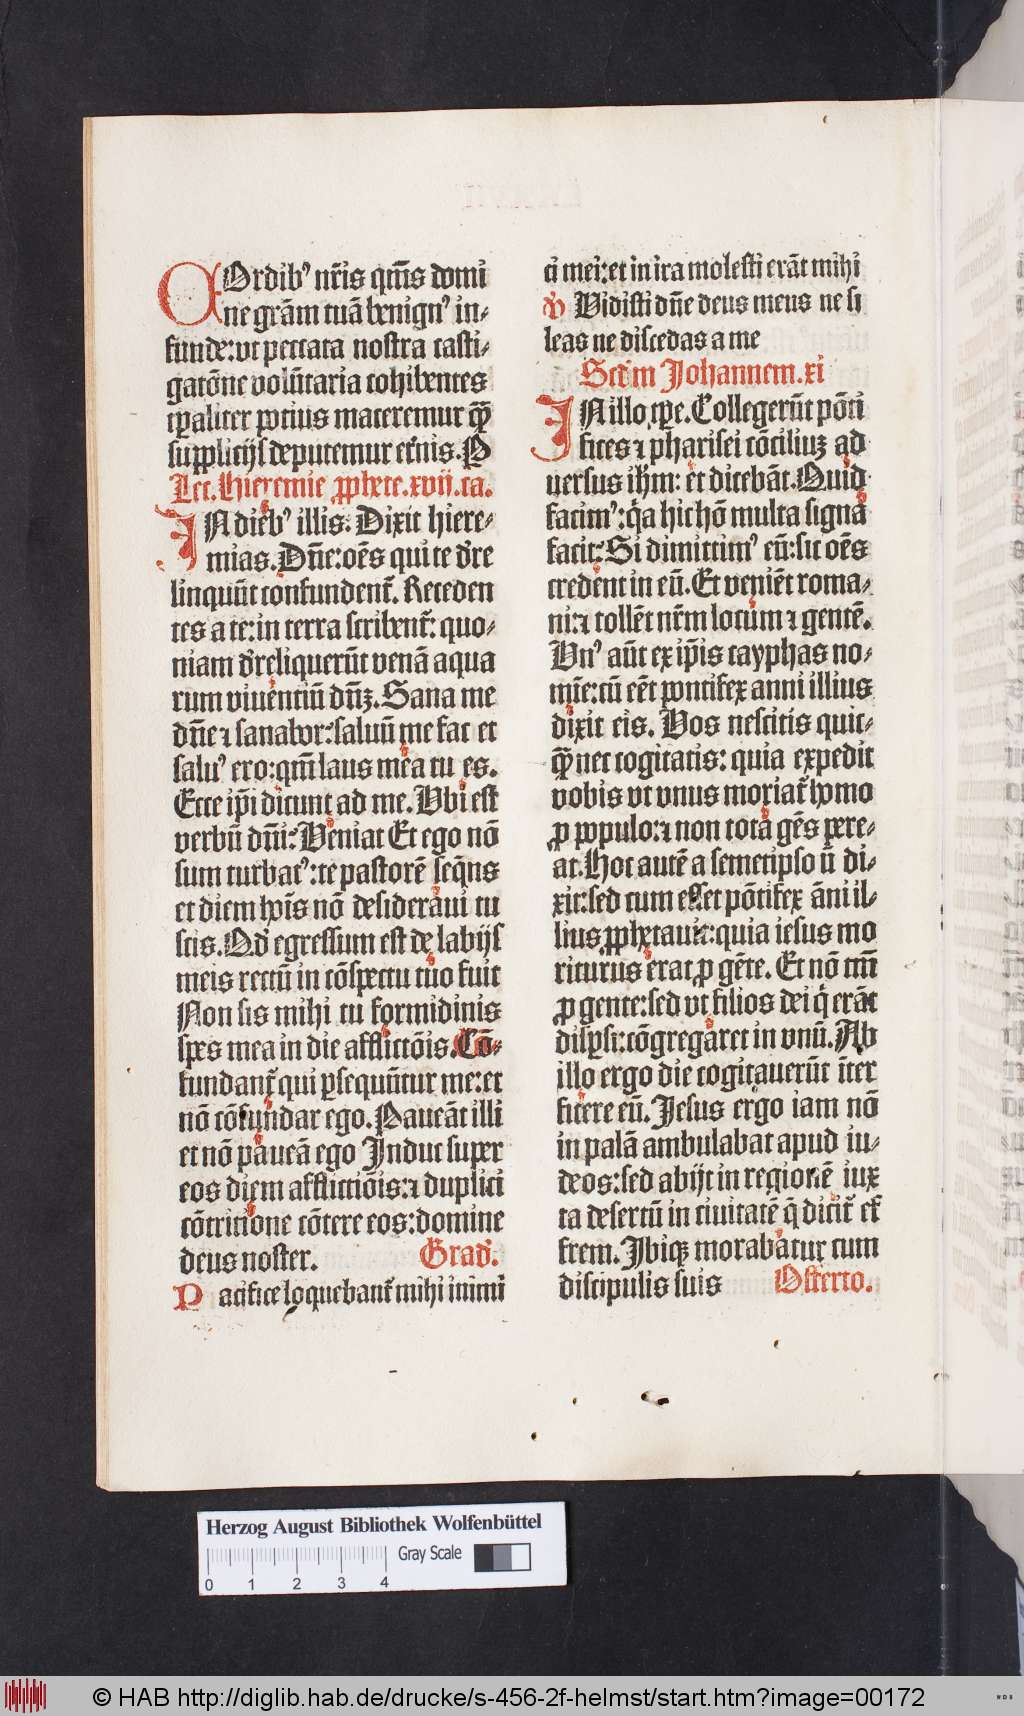 COrdibꝰ nr̄is qm̄s domi
ne grām tuā benignꝰ in-
funde: vt peccata nostra casti-
gatōne volūtaria cohibentes
tp̄aliter potius maceremur qꝫ
supplicijs deputemur et̄nis. P
Lec. Hieremie ꝓphete. xvij. ca.
IN diebꝰ illis: Dixit hiere-
mias. Dn̄e: oēs qui te d're
linquūt confundent̄. Receden
tes a te: in terra scribent̄: quo-
niam d'reliquerūt venā aqua
rum viuentiū dn̄ꝫ. Sana me
dn̄e ⁊ sanabor: saluū me fac et
saluꝰ ero: qm̄ laus mea tu es.
Ecce ip̄i dicunt ad me. Vbi est
verbū dn̄i: Veniat Et ego nō
sum turbatꝰ: te pastorē seq̄ns
et diem hoīs nō desideraui tu
scis. Qd' egressum est de labijs
meis rectū in cōspectu tuo fuit
Non sis mihi tu formidinis
spes mea in die afflictōis. Cō-
fundant̄ qui ꝑsequūtur me: et
nō cōfundar ego. Paueāt illi
et nō paueā ego Induc super
eos diem afflictiōis: ⁊ duplici
cōtritione cōtere eos: domine
deus noster. Grad'.
Pacifice loquebant̄ mihi inimi
ci mei: et in ira molesti erāt mihi
V Vidisti dn̄e deus meus ne si
leas ne discedas a me
Scd'm Johannem. xi
IN illo tp̄e. Collegerūt pōti
fices ⁊ pharisei cōciliuꝫ ad
uersus ih̄m: et dicebāt. Quid
facimꝰ: q̄a hic hō multa signa
facit: Si dimittimꝰ eū: sic oēs
credent in eū. Et veniēt roma-
ni: ⁊ tollēt nr̄m locum ⁊ gentē.
Vnꝰ aūt ex ip̄is cayphas no-
mīe: cū eēt pontifex anni illius
dixit eis. Vos nescitis quic-
qꝫ nec cogitatis: quia expedit
vobis vt vnus moriat̄ homo
ꝓ populo: ⁊ non tota gēs pere-
at. Hoc autē a semetipso ū di-
xit: sed cum esset pōtifex āni il-
lius ꝓphetauit: quia iesus mo
riturus erat ꝓ gēte. Et nō tm̄
ꝓ gente: sed vt filios dei q̄ erāt
disꝑsi: cōgregaret in vnū. Ab
illo ergo die cogitauerūt īter
ficere eū. Jesus ergo iam nō
in palā ambulabat apud iu-
deos: sed abijt in regionē iux
ta desertū in ciuitatē q̄ dicit̄ ef
frem. Ibiqꝫ morabatur cum
discipulis suis Offerto.
Herzog August Bibliothek Wolfenbüttel
Gray Scale
0 1 2 3 4
© HAB http://diglib.hab.de/drucke/s-456-2f-helmst/start.htm?image=00172